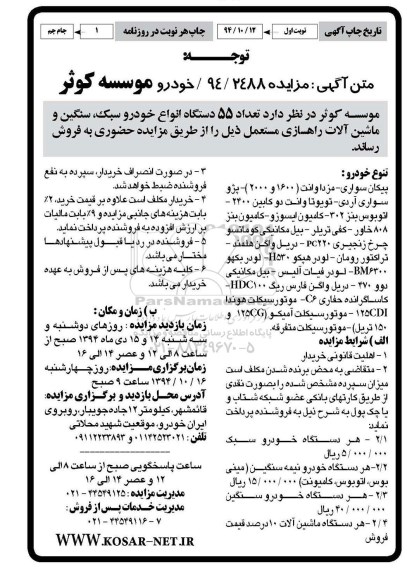 تاریخ چاپ آگهی
نوبت اول
۹۴/۱۰/۱۲
چاپ هر نوبت در روزنامه
۱
جام جم
توجه:
متن آگهی: مزایده ۲۴۸۸/ ۹۴/ خودرو موسسه کوثر
موسسه کوثر در نظر دارد تعداد ۵۵ دستگاه انواع خودرو سبک، سنگین و
ماشین آلات راهسازی مستعمل ذیل را از طریق مزایده حضوری به فروش
رساند.
نوع خودرو:
پیکان سواری-مزدا وانت (۱۶۰۰ و ۲۰۰۰)-پژو
سواری آردی-تویوتا وانت دو کابین ۲۴۰۰ -
اتوبوس بنز ۳۰۲-کامیون ایسوزو-کامیون بنز
۸۰۸ خاور - کفی تریلر - بیل مکانیکی کوماتسو
چرخ زنجیری PC۲۲۰ - دریل واگن هلمند -
تراکتور رومان - لودر هپکو H۵۳۰ - لودر بکهو
BM۶۳۰۰- لودر فیات آلیس - بیل مکانیکی
دوو ۴۷۰ - دریل واگن فارس ریگ HDC۱۰۰-
کاساگرانده حفاری C۶- موتورسیکلت هوندا
۱۲۵CDI - موتورسیکلت آمیکو (۱۲۵CG و
۱۵۰ تریل)-موتورسیکلت متفرقه.
الف) شرایط مزایده
۱ - اهلیت قانونی خریدار
۲ - متقاضی به محض برنده شدن مکلف است
میزان سپرده مشخص شده را بصورت نقدی
از طریق کارتهای بانکی عضو شبکه شتاب و
یا چک پول به شرح ذیل به فروشنده پرداخت
نماید:
۲/۱ - هر دستگاه خودرو سبک
۵/۰۰۰/۰۰۰ ریال
۲/۲-هر دستگاه خودرو نیمه سنگین (مینی
بوس، اتوبوس، کامیونت) ۱۵/۰۰۰/۰۰۰ ریال
۲/۳ - هر دستگاه خودرو سنگین
۴۰/۰۰۰/۰۰۰ ریال
۲/۴ - هر دستگاه ماشین آلات ۱۰درصد قیمت
فروش
۳ - در صورت انصراف خریدار، سپرده به نفع
فروشنده ضبط خواهد شد.
۴ - خریدار مکلف است علاوه بر قیمت خرید، ۲٪
بابت هزینه های جانبی مزایده و ۹٪ بابت مالیات
بر ارزش افزوده به فروشنده پرداخت نماید.
۵ - فروشنده در رد یا قبول پیشنهادها
مختار می باشد.
۶ - کلیه هزینه های پس از فروش به عهده
خریدار می باشد.
ب) زمان و مکان:
زمان بازدید مزایده: روزهای دوشنبه و
سه شنبه ۱۴ و ۱۵ دی ماه ۱۳۹۴ صبح از
ساعت ۸ الی ۱۲ و عصر ۱۴ الی ۱۶
زمان برگزاری مزایده: روز چهارشنبه
۱۳۹۴/۱۰/۱۶ ساعت ۹ صبح
آدرس محل بازدید و برگزاری مزایده:
قائمشهر، کیلومتر ۱۲ جاده جویبار، روبروی
ایران خودرو، موقعیت شهید محلاتی
تلفن: ۰۱۱۴۲۵۲۳۰۲۱ و ۰۹۱۱۲۲۳۳۸۹۳
ساعت پاسخگویی صبح از ساعت ۸ الی
۱۲ و عصر ۱۴ الی ۱۶
مدیریت مزایده: ۳۴۵۴۹۱۲۵-۰۲۱
مدیریت خدمات پس از فروش:
۷-۳۴۵۴۹۱۱۶-۰۲۱
WWW.KOSAR-NET.IR